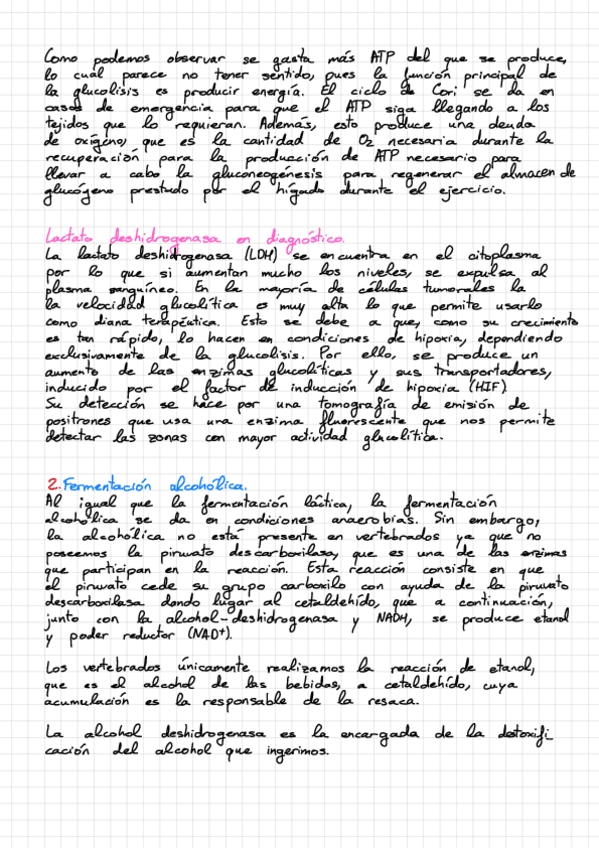 Como podemos observar se gasta más ATP del que se produce,
lo cual parece no tener sentido, pues la función principal de
la glucolisis es producir energía. El ciclo de Cori se da en
casos de emergencia para que el ATP siga llegando a los
tejidos que lo requieran. Además, esto produce una deuda
de oxígeno, que es la cantidad de O2 necesaria durante la
recuperación para la producción de ATP necesario para
llevar a cabo la gluconeogénesis para regenerar el almacen de
glucógeno prestado por el hígado durante el ejercicio.
Lactato deshidrogenasa en diagnóstico.
La lactato deshidrogenasa (LDH) se encuentra en el citoplasma
por lo que si aumentan mucho los niveles, se expulsa al
plasma sanguíneo. En la mayoría de células tumorales la
la velocidad glucolítica es muy alta lo que permite usarlo
como diana terapéutica. Esto se debe a que, como su crecimiento
es tan rápido, lo hacen en condiciones de hipoxia, dependiendo
exclusivamente de la glucolisis. Por ello, se produce un
aumento de las enzimas glucolíticas y sus transportadores,
inducido por el factor de inducción de hipoxia (HIF)
Su detección se hace por una tomografía de emisión de
positrones que usa una enzima fluorescente que nos permite
detectar las zonas con mayor actividad glucolítica.
2. Fermentación alcohólica.
Al igual que la fermentación láctica, la fermentación
alcohólica se da en condiciones anaerobias. Sin embargo,
la alcohólica no está presente en vertebrados ya que no
poseemos la piruvato descarboxilasa, que es una de las enzimas
que participan en la reacción. Esta reacción consiste en que
el piruvato cede su grupo carboxilo con ayuda de la piruvato
descarboxilasa dando lugar al cetaldehído, que a continuación,
junto con la alcohol-deshidrogenasa y NADH, se produce etanol
y poder reductor (NAD+).
Los vertebrados únicamente realizamos la reacción de etanol,
que es el alcohol de las bebidas, a cetaldehído, cuya
acumulación es la responsable de la resaca.
La alcohol deshidrogenasa es la encargada de la detoxifi_
cación del alcohol que ingerimos.